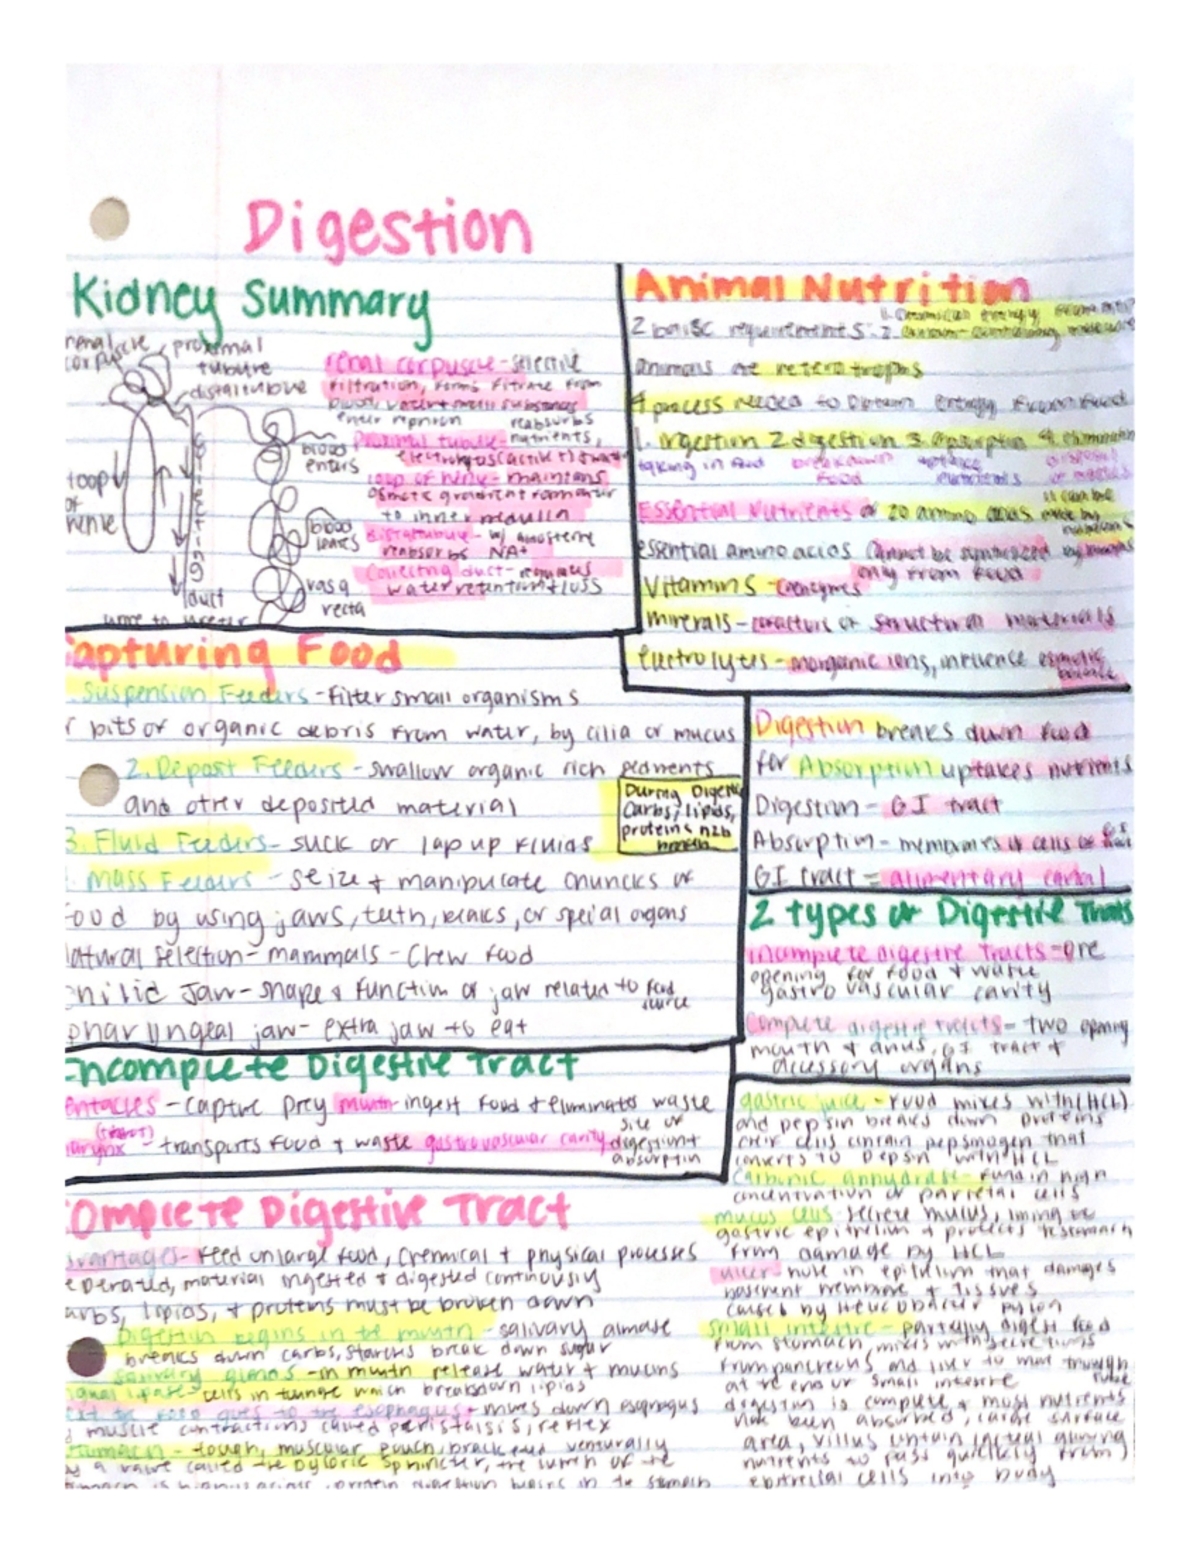 Digestion
Kidney Summary
proximal
tubule
loop
of
henle
blood
enters
blood
leaves
vasa
recta
duct
renal corpuscle - selective
filtration, forms filtrate from
blood, water + small substances
enter nephron reabsorbs
proximal tubule - nutrients,
electrolytes (active t) + water
loop of henle - maintains
osmotic gradient from outer
to inner medulla
reabsorbs NA+
Collecting duct - regulates
water retention + loss
Animal Nutrition
2 basic requirements: 1. Chemical energy from
animals are heterotrophs
4 process needed to obtain energy from food
1. ingestion 2 digestion 3 absorption 4. elimination
taking in food breakdown uptake
food nutrients
Essential Nutrients 20 amino acids
essential amino acids cannot be synthesized by
only from food
Vitamins - coenzymes
minerals - cofactors or structural materials
electrolytes - inorganic ions, influence osmotic
balance
apturing Food
Suspension Feeders - filter small organisms
r bits of organic debris from water, by cilia or mucus
2. Deposit Feeders - swallow organic rich
and other deposited material
3. Fluid Feeders - suck or lap up fluids
Mass Feeders - seize + manipulate chuncks of
food by using jaws, teeth, beaks, or special organs
atural selection - mammals - chew food
jaw - shape + function of jaw related to food
source
pharyngeal jaw - extra jaw to eat
During Digesti
Carbs, lipids,
proteins
Digestion breaks down food
for Absorption uptakes nutrients
Digestion - GI tract
Absorption - membranes of cells of GI
GI tract = alimentary canal
2 types of Digestive Tracts
incomplete digestive tracts - one
opening for food + waste
gastro vascular cavity
Complete digestive tracts - two opening
mouth + anus, GI tract +
accessory organs
Incomplete Digestive Tract
entacles - capture prey mouth - ingest food + eliminates waste
(throat)
- transports food + waste gastrovascular cavity site of
digestion +
absorption
omplete Digestive Tract
dvantages - feed on large food, chemical + physical processes
eperated, material ingested + digested continously
arbs, lipids, + proteins must be broken down
Digestion begins in the mouth - salivary
breaks down carbs, starches break down sugar
salivary glands - in mouth release water + mucins
lipase - cells in tounge which breakdown lipids
food goes to the esophagus - moves down esophagus
muscle contractions called peristalsis, reflex
stomach - tough, muscular pouch,
by a valve called the pyloric sphincter, the lumen of the
protein digestion begins in the stomach
gastric juice - food mixes with (HCL)
and pepsin breaks down proteins
chief cells contain pepsinogen that
converts to pepsin with HCL
carbonic anhydrase - found in high
concentration of parietal cells
mucus cells - secrete mucus, lining the
gastric epithelium + protects
from damage by HCL
ulcer - hole in epithelium that damages
basement membrane + tissues
caused by
small intestine - partially digest food
from stomach, mixes with secretions
from pancreas and liver to
at the end of small intestine
digestion is complete + most nutrients
have been absorbed, large surface
area, villus
nutrients to pass quickley from
epithelial cells into body